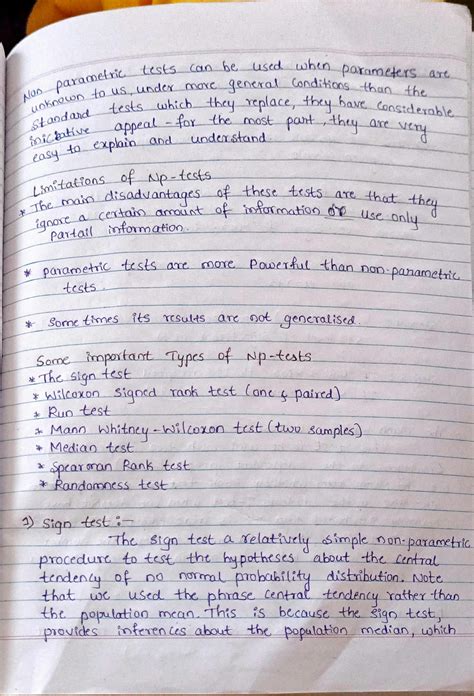 Non parametric tests can be used when parameters are
unknown to us, under more general conditions than the
standard tests which they replace, they have considerable
inictative appeal for the most part, they are very
easy to explain and understand
Limitations of Np-tests
* The main disadvantages of these tests are that they
ignore a certain amount of information or use only
Partail information.
* parametric tests are more Powerful than non-parametric
tests.
* Some times its results are not generalised.
Some important Types of Np-tests
* The sign test
* Wilcoxon signed rank test (one & paired)
* Run test
* Mann Whitney-Wilcoxon test (two samples)
* Median test
* Spearman Rank test
* Randomness test
1) Sign test :-
The sign test a relatively simple non-parametric
procedure to test the hypotheses about the central
tendency of no normal probability distribution. Note
that we used the phrase central tendency rather than
the population mean. This is because the sign test,
provides inferences about the population median, which